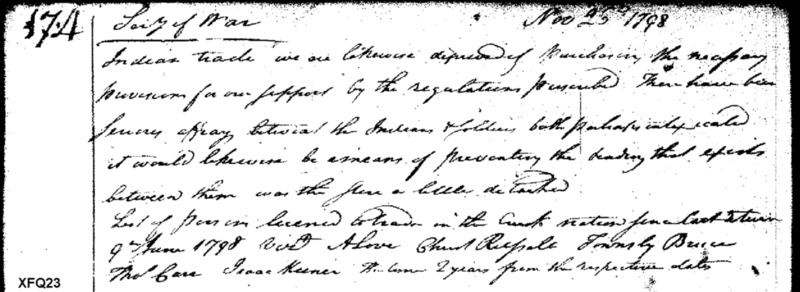 174
Secy of War Novr 25th 1798
Indian trade we are likewise deprived of purchasing the necessary
provisions for our support by the regulations prescribed There have been
affrays betwixt the Indians & soldiers both
it would likewise be a means of preventing the that exists
between them was the a little detached
List of persons licenced to trade in the Creek nation since last return
9th June 1798 Vizt Town
Thos Carr Isaac the term 2 years from the respective dates
XFQ23